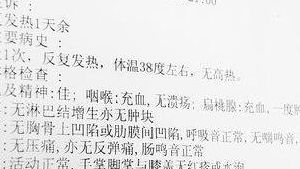 诉：
发热1天余
要病史：
1次，反复发热，体温38度左右，无高热。
格检查：
及精神:佳；咽喉:充血,无溃疡；扁桃腺:充血,一度肿
:无淋巴结增生亦无肿块
:无胸骨上凹陷或肋膜间凹陷,呼吸音正常,无喘鸣音,
:无压痛,亦无反弹痛,肠鸣音正常
:活动正常,手掌脚掌与膝盖无红疹或水泡